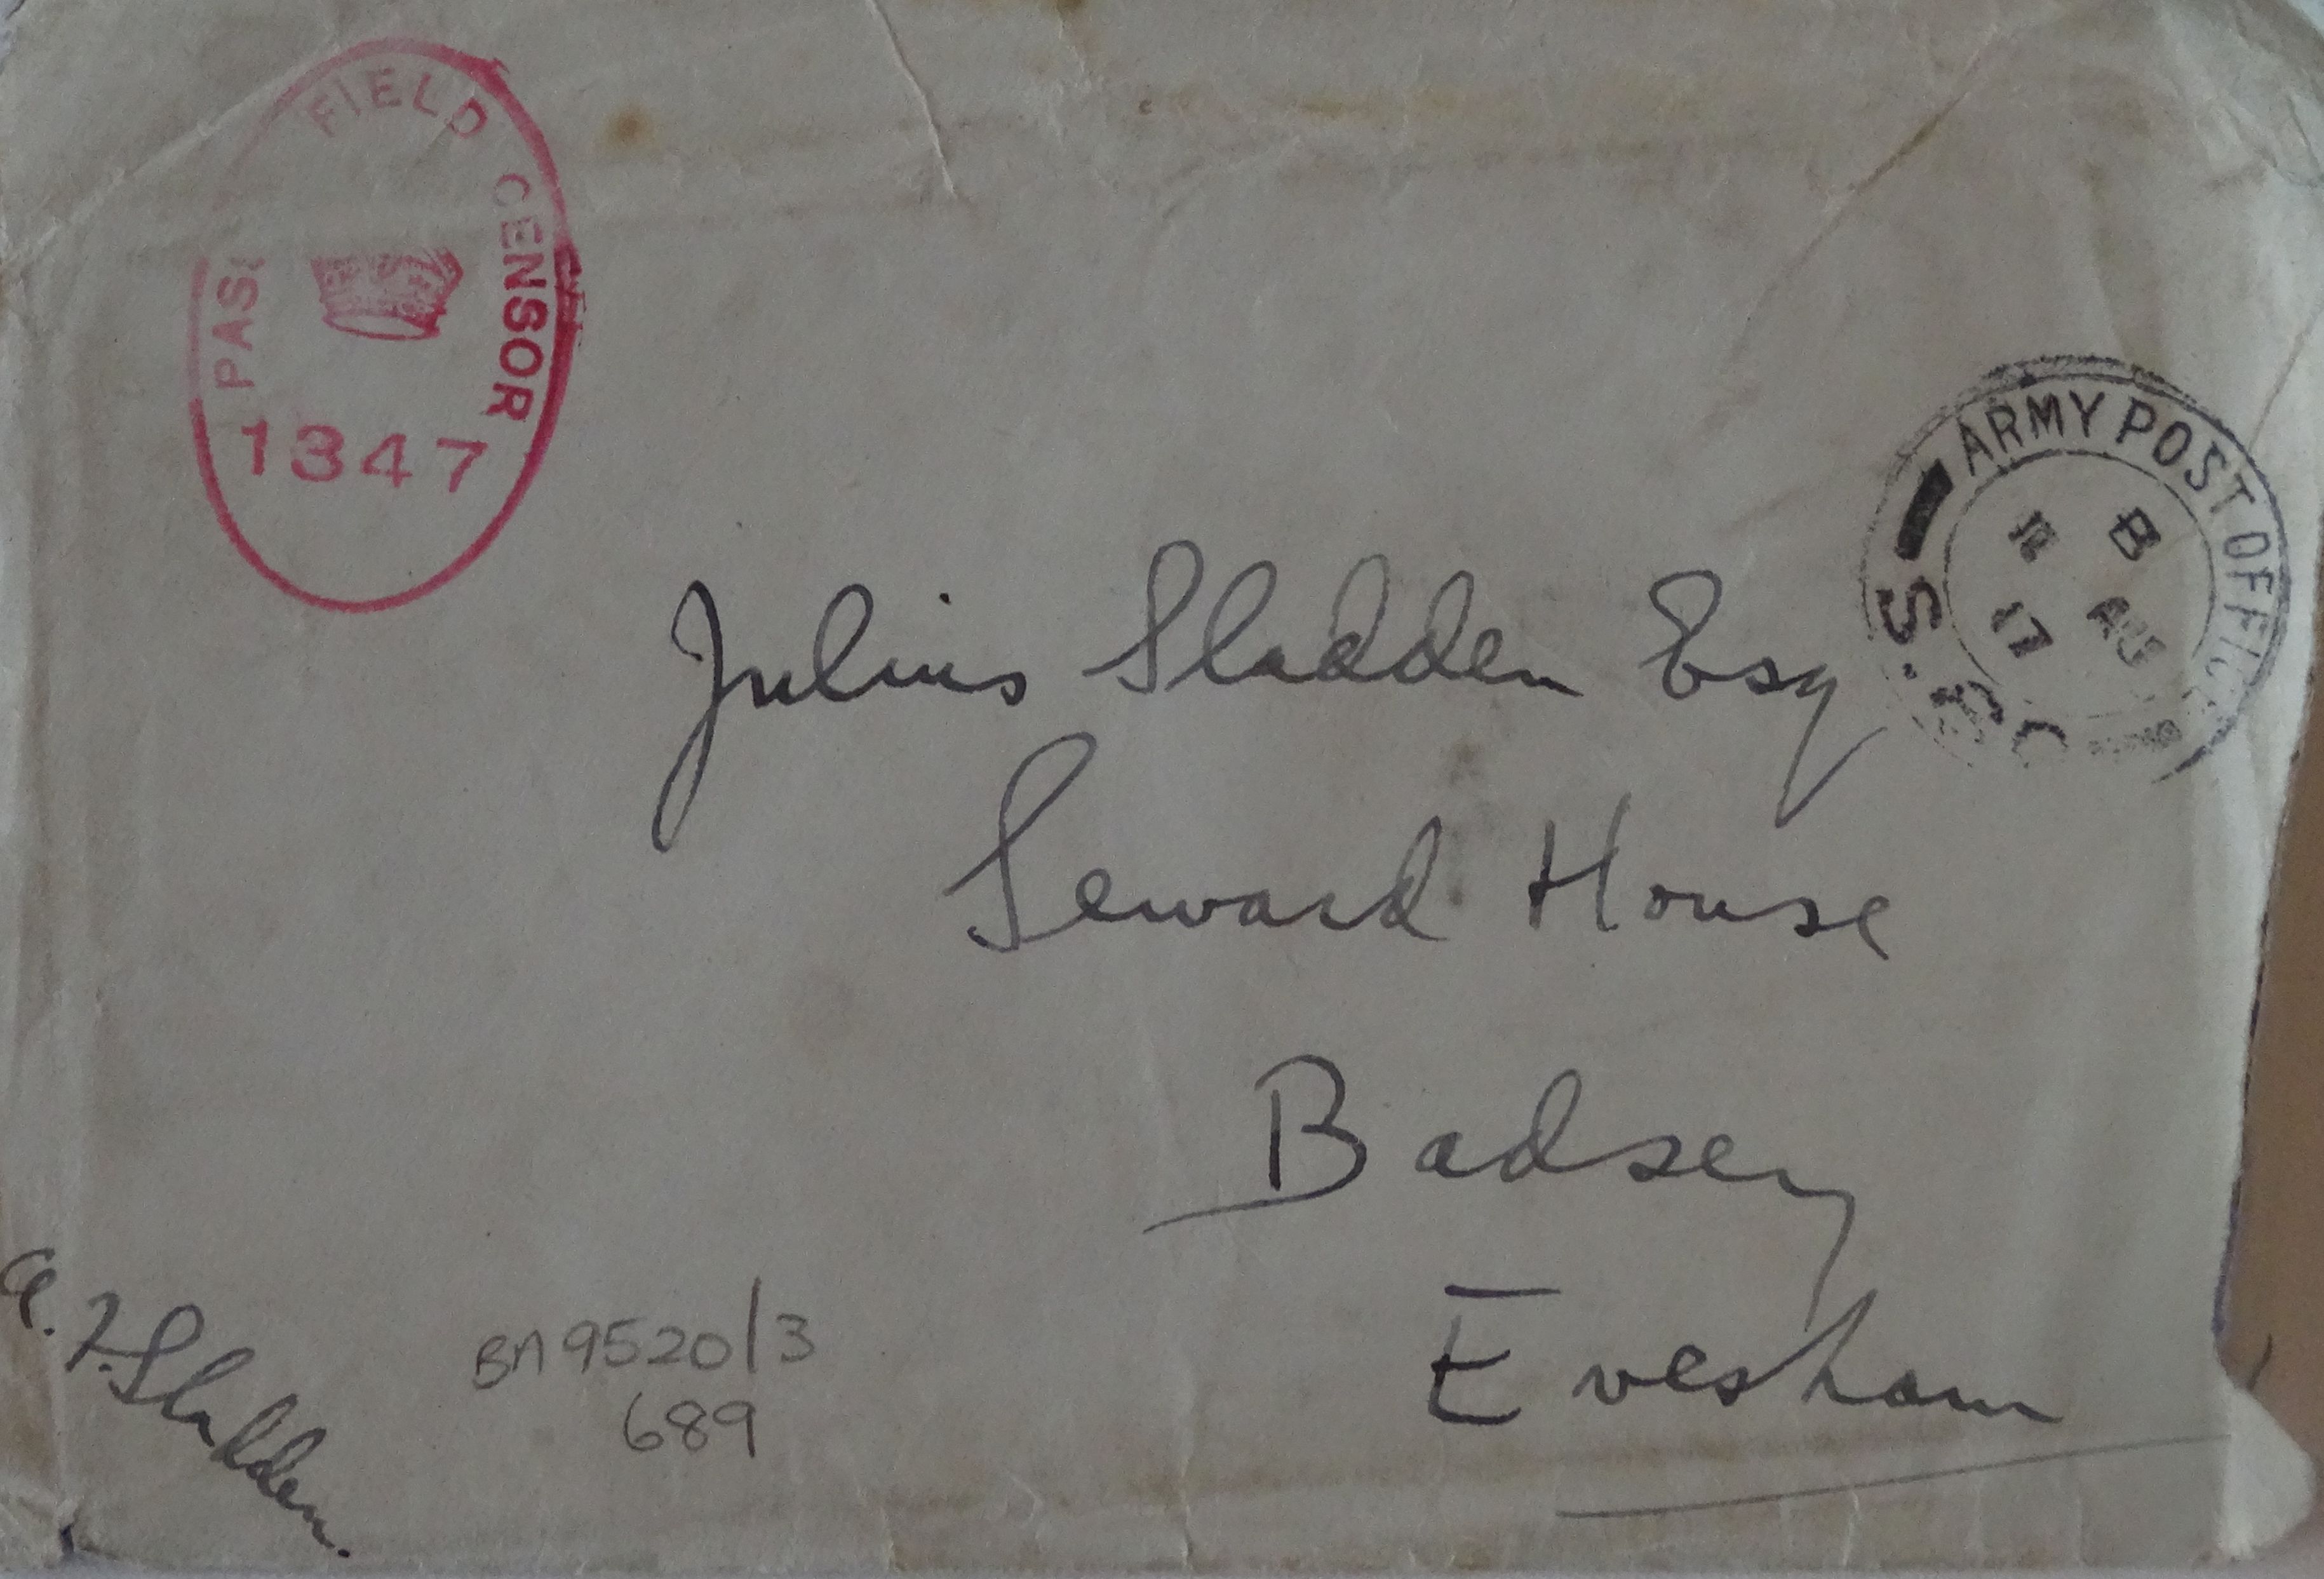 FIELD CENSOR
PAS
1347
ARMY POST OFFICE
B
AU
17
S.
Julius Sladden Esq
Seward House
Badsey
Evesham
A. F. Sladden.
BA 9520/3
689